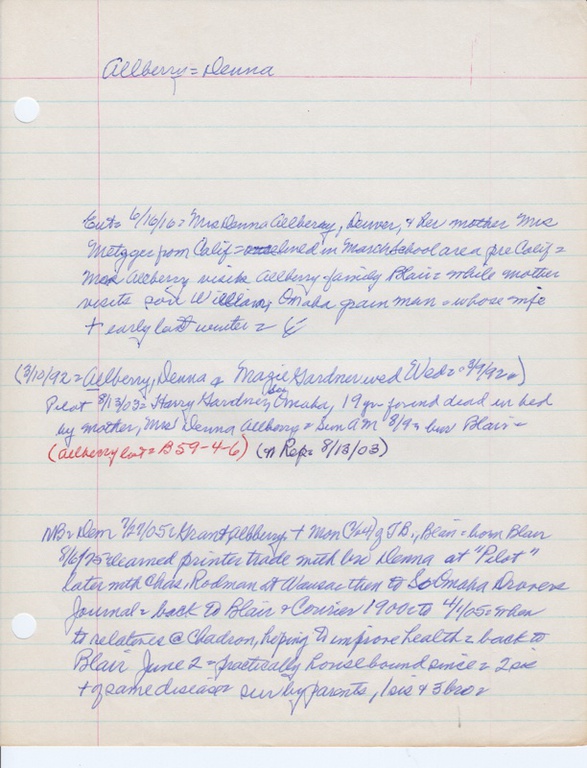 Allberry = Denna
Ent = 6/16/16 = Mrs Denna Allberry, Denver, & her mother Mrs
Metzger from Calif = lived in March School area pre Calif =
Mrs Allberry visits Allberry family Blair = while mother
visits son William, Omaha grain man = whose wife
+ early last winter =
(3/10/92 = Allberry, Denna & Mazie Gardner wed Wed = 3/9/92 =)
Pilot 8/13/03 = Harry Gardner, Omaha, 19 yr found dead in bed
by mother, Mrs Denna Allberry = Sun AM 8/9 = bur Blair =
(Allberry lot = B 59-4-6) (n Rep = 8/13/03)
NB = Dem 7/27/05 = Grant Allberry, + Mon (24) of TB., Blair = born Blair
8/6/75 = learned printer trade with bro Denna at "Pilot"
later with Chas. Rodman at Wausa = then to So Omaha Drovers
Journal = back to Blair & Courier 1900 to 4/1/05 = when
to relatives @ Chadron, hoping to improve health = back to
Blair June 2 = practically housebound since = 2 sis
+ of same disease = sur by parents, 1 sis & 3 bro =